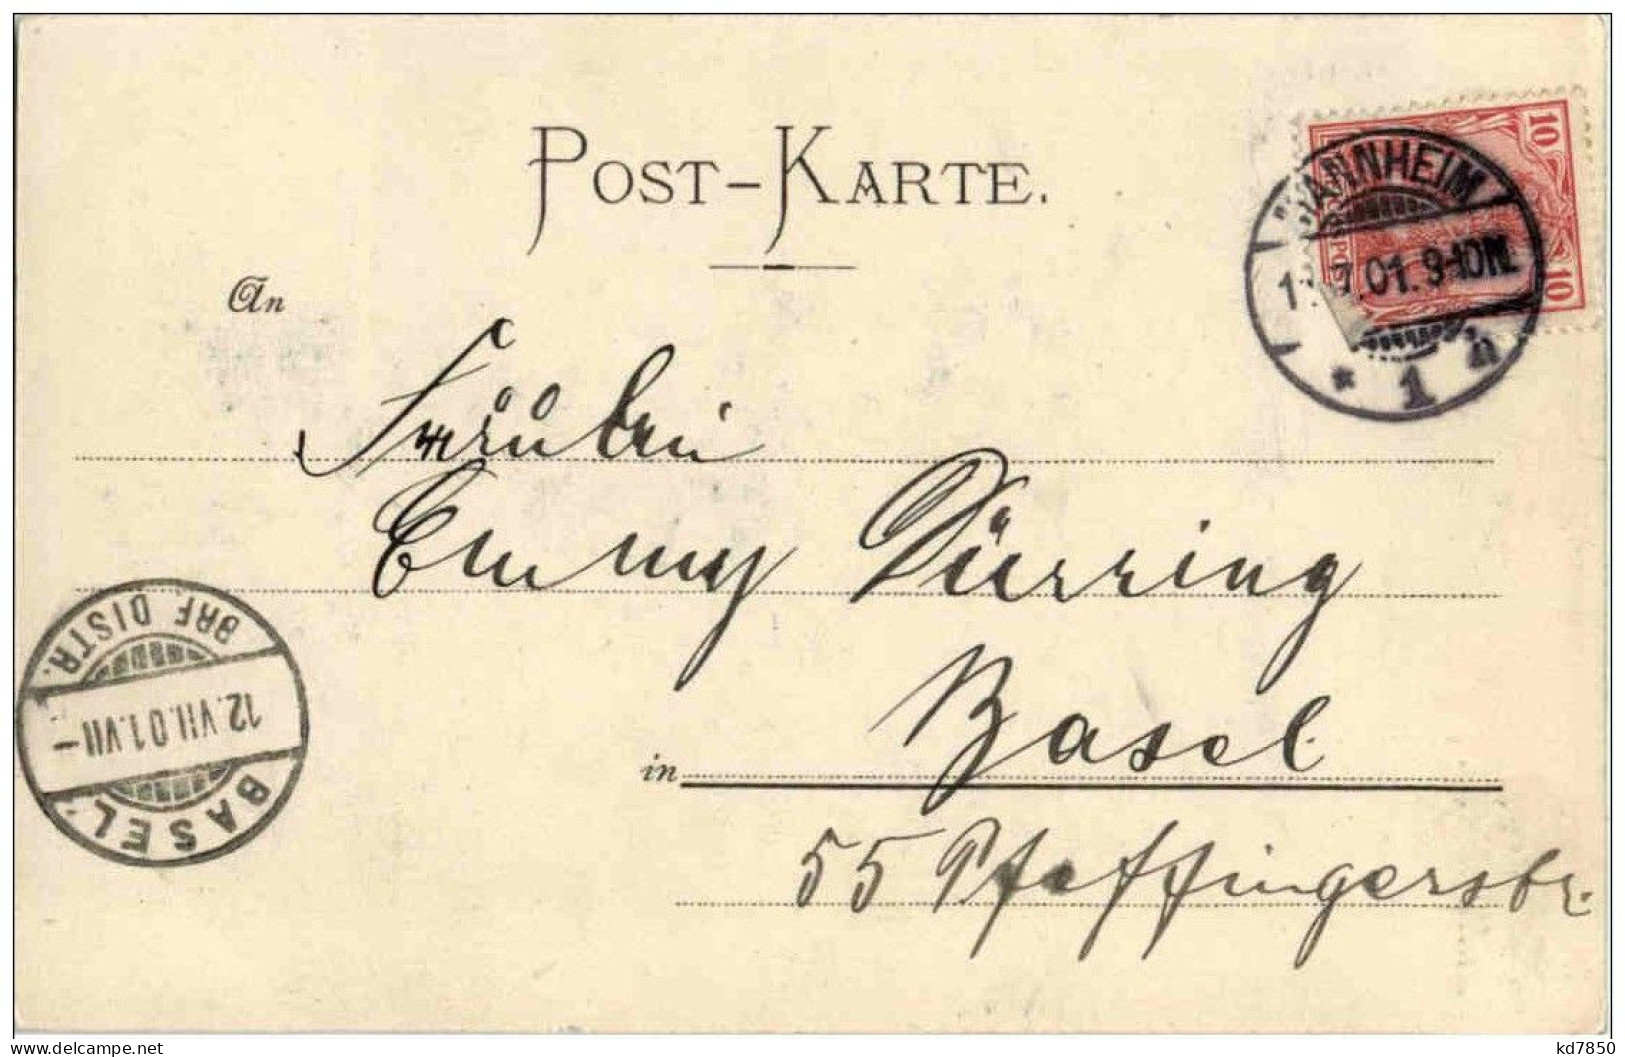 POST-KARTE.
MANNHEIM
7.01. 9-10N.
* 1 h
10
10
An
Fräulein
Emmy Dürring
in Basel
55 Pfeffingerstr.
BRF. DISTR.
12.VII.01.VII-
BASEL
www.delcampe.net
kd7850